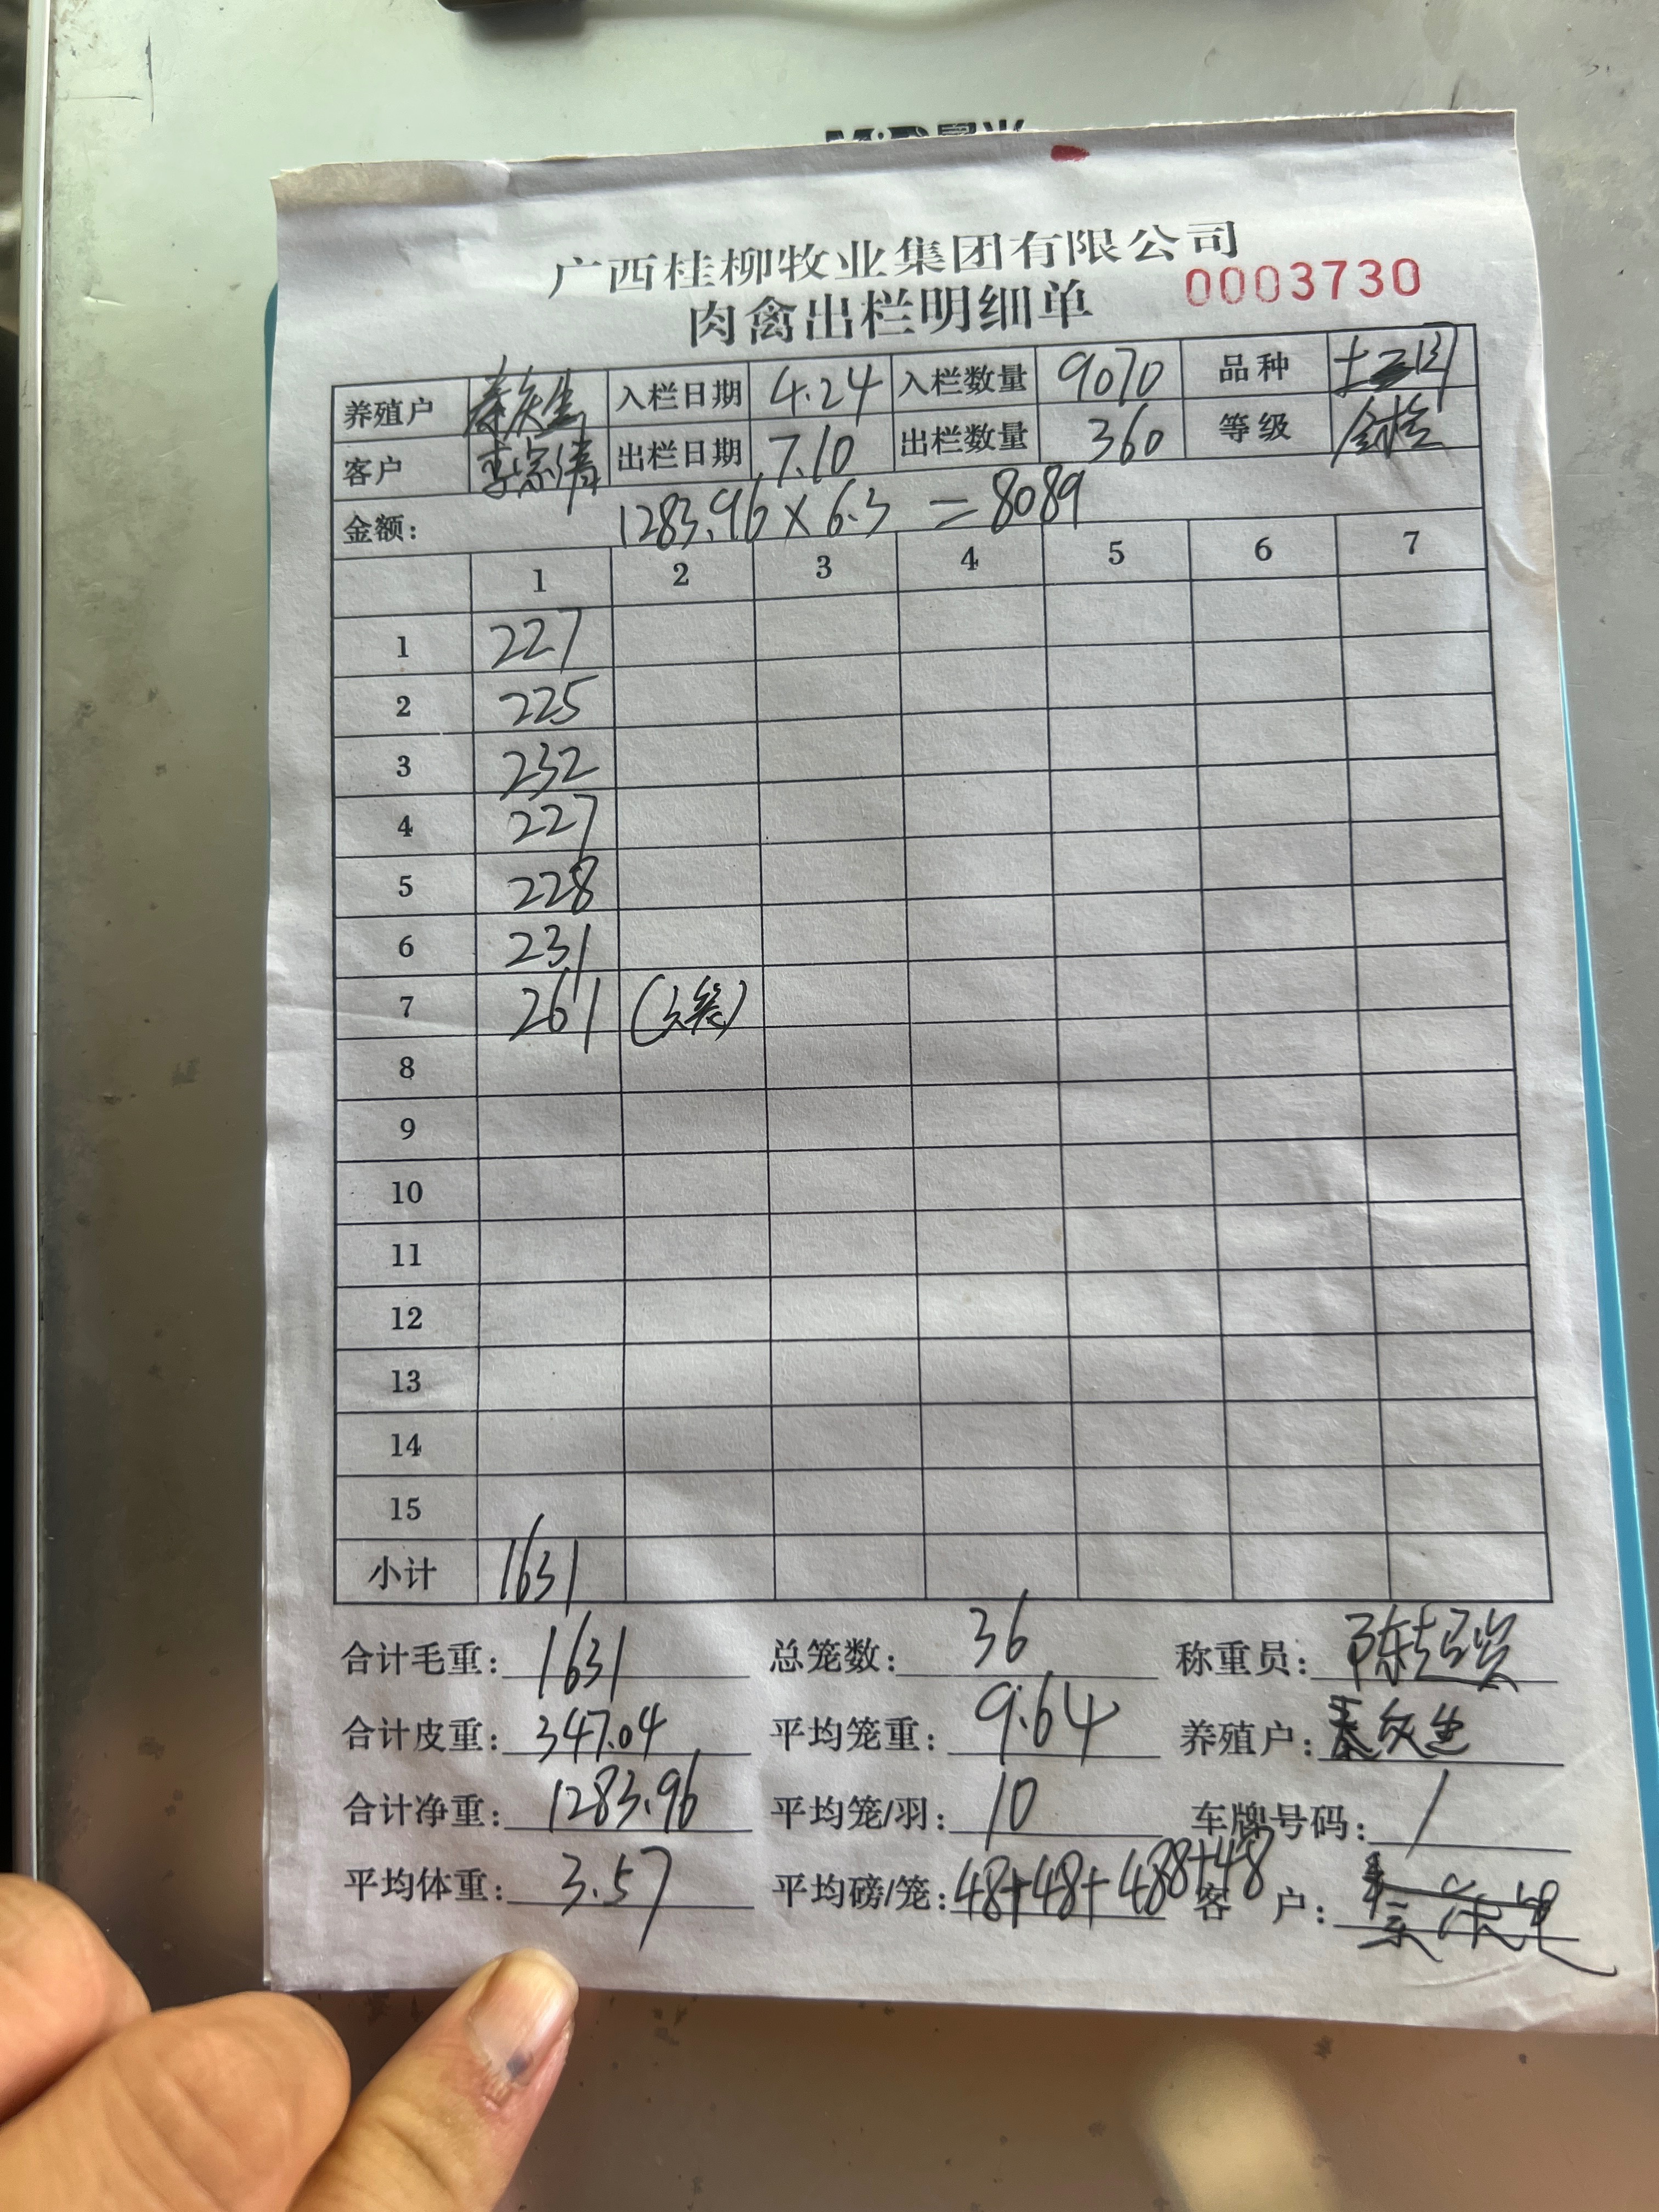 广西桂柳牧业集团有限公司
肉禽出栏明细单 0003730
养殖户 秦庆生 入栏日期 4.24 入栏数量 9070 品种 土二
客户 李宗倩 出栏日期 7.10 出栏数量 360 等级
金额: 1283.96×6.3=8089
1 2 3 4 5 6 7
1 227
2 225
3 232
4 227
5 228
6 231
7 261 (笼)
8
9
10
11
12
13
14
15
小计 1631
合计毛重: 1631 总笼数: 36 称重员: 陈
合计皮重: 347.04 平均笼重: 9.64 养殖户: 秦庆生
合计净重: 1283.96 平均笼/羽: 10 车牌号码: /
平均体重: 3.57 平均磅/笼: 48+48+488+48 客 户: